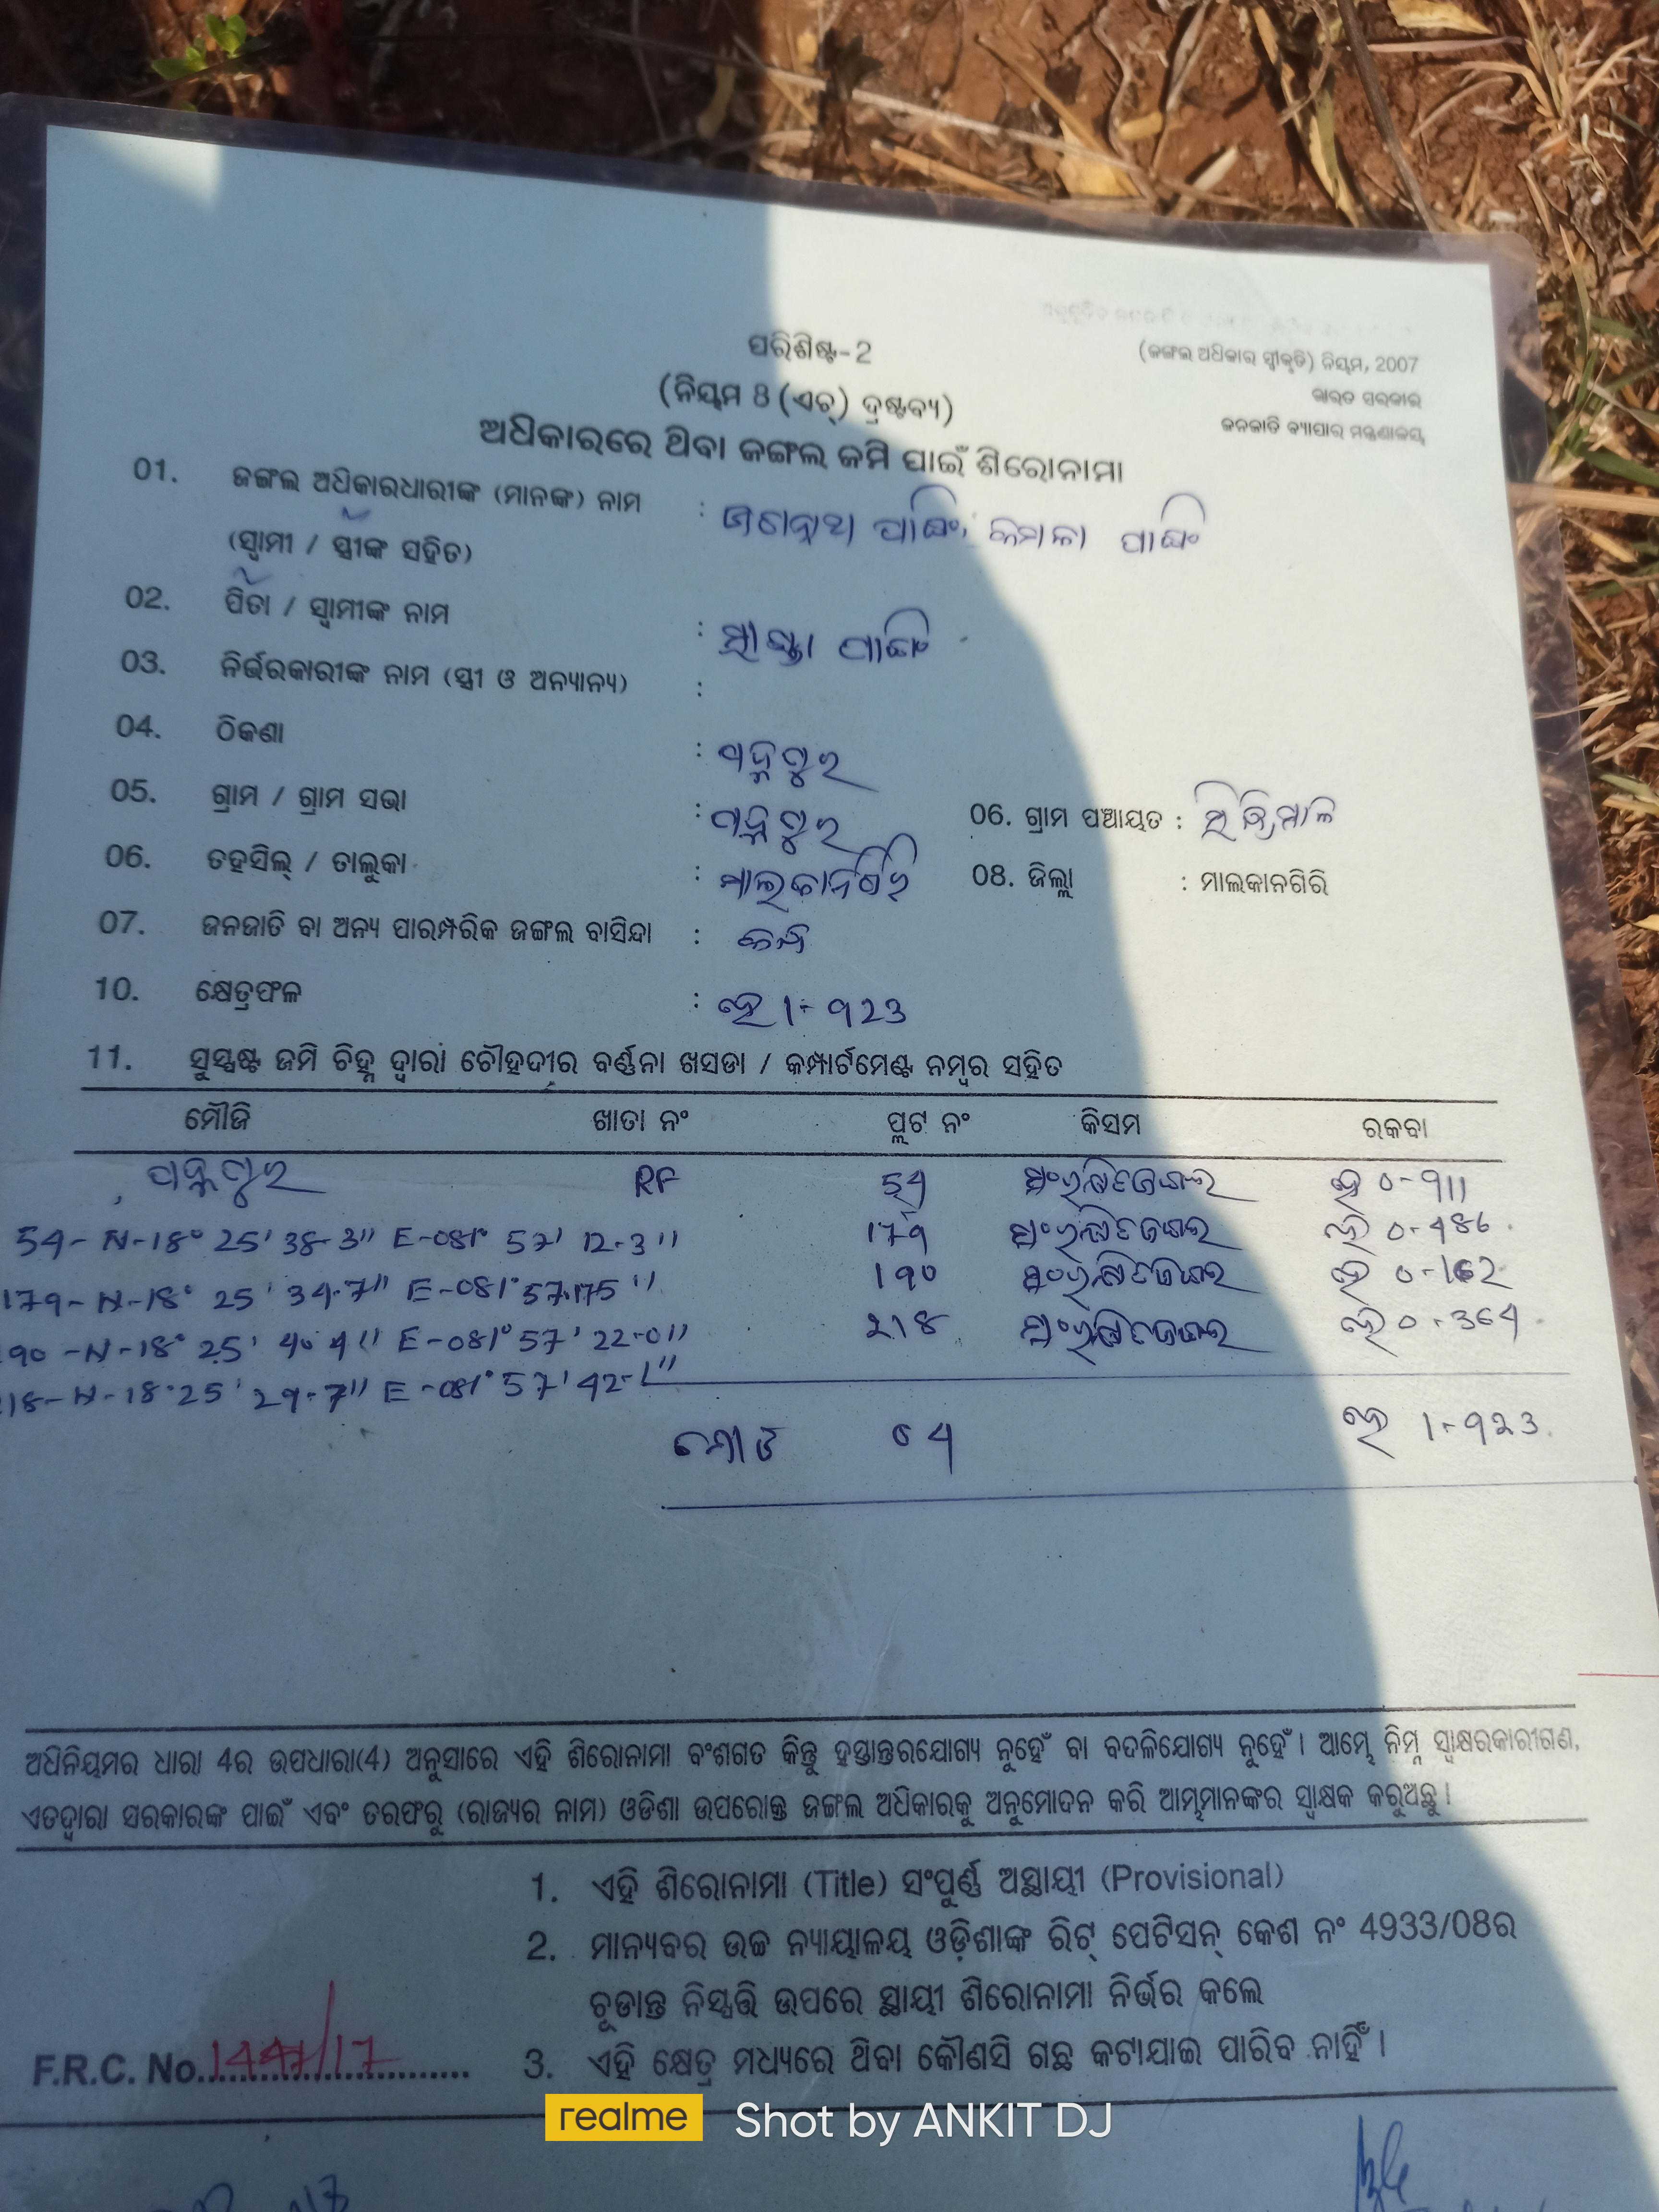 ପରିଶିଷ୍ଟ-2
(ଜଙ୍ଗଲ ଅଧିକାର ସ୍ୱୀକୃତି) ନିୟମ, 2007
(ନିୟମ 8 (ଏଚ୍) ଦ୍ରଷ୍ଟବ୍ୟ)
ଭାରତ ସରକାର
ଜନଜାତି ବ୍ୟାପାର ମନ୍ତ୍ରଣାଳୟ
ଅଧିକାରରେ ଥିବା ଜଙ୍ଗଲ ଜମି ପାଇଁ ଶିରୋନାମା
01. ଜଙ୍ଗଲ ଅଧିକାରଧାରୀଙ୍କ (ମାନଙ୍କ) ନାମ : ପାଙ୍ଗି, କମଳା ପାଙ୍ଗି
(ସ୍ୱାମୀ / ସ୍ତ୍ରୀଙ୍କ ସହିତ)
02. ପିତା / ସ୍ୱାମୀଙ୍କ ନାମ : ପାଙ୍ଗି
03. ନିର୍ଭରକାରୀଙ୍କ ନାମ (ସ୍ତ୍ରୀ ଓ ଅନ୍ୟାନ୍ୟ) :
04. ଠିକଣା : ପଦ୍ମପୁର
05. ଗ୍ରାମ / ଗ୍ରାମ ସଭା : ପଦ୍ମପୁର 06. ଗ୍ରାମ ପଞ୍ଚାୟତ :
06. ତହସିଲ୍ / ତାଲୁକା : ମାଲକାନଗିରି 08. ଜିଲ୍ଲା : ମାଲକାନଗିରି
07. ଜନଜାତି ବା ଅନ୍ୟ ପାରମ୍ପରିକ ଜଙ୍ଗଲ ବାସିନ୍ଦା :
10. କ୍ଷେତ୍ରଫଳ : ହେ ୧-୯୨୩
11. ସୁସ୍ପଷ୍ଟ ଜମି ଚିହ୍ନ ଦ୍ୱାରା ଚୌହଦୀର ବର୍ଣ୍ଣନା ଖସଡା / କମ୍ପାର୍ଟମେଣ୍ଟ ନମ୍ବର ସହିତ
ମୌଜି ଖାତା ନଂ ପ୍ଲଟ ନଂ କିସମ ରକବା
ପଦ୍ମପୁର RF 54 ହେ 0-911
54- N-18° 25' 38-3" E-081° 57' 12-3" 179 ହେ 0-486
179- N-18° 25' 34-7" E-081° 57' 17.5" 190 ହେ 0-162
90 -N-18° 25' 40 4" E-081° 57' 22-0" 218 ହେ 0-364
18- N-18° 25' 29-7" E-081° 57' 42-1"
ମୋଟ ୦୪ ହେ 1-923
ଅଧିନିୟମର ଧାରା 4ର ଉପଧାରା(4) ଅନୁସାରେ ଏହି ଶିରୋନାମା ବଂଶଗତ କିନ୍ତୁ ହସ୍ତାନ୍ତରଯୋଗ୍ୟ ନୁହେଁ ବା ବଦଳିଯୋଗ୍ୟ ନୁହେଁ। ଆମ୍ଭେ ନିମ୍ନ ସ୍ୱାକ୍ଷରକାରୀଗଣ,
ଏତଦ୍ୱାରା ସରକାରଙ୍କ ପାଇଁ ଏବଂ ତରଫରୁ (ରାଜ୍ୟର ନାମ) ଓଡିଶା ଉପରୋକ୍ତ ଜଙ୍ଗଲ ଅଧିକାରକୁ ଅନୁମୋଦନ କରି ଆମ୍ଭମାନଙ୍କର ସ୍ୱାକ୍ଷକ କରୁଅଛୁ।
1. ଏହି ଶିରୋନାମା (Title) ସଂପୁର୍ଣ୍ଣ ଅସ୍ଥାୟୀ (Provisional)
2. ମାନ୍ୟବର ଉଚ୍ଚ ନ୍ୟାୟାଳୟ ଓଡ଼ିଶାଙ୍କ ରିଟ୍ ପେଟିସନ୍ କେଶ ନଂ 4933/08ର
ଚୂଡାନ୍ତ ନିସ୍ପତ୍ତି ଉପରେ ସ୍ଥାୟୀ ଶିରୋନାମା ନିର୍ଭର କଲେ
F.R.C. No. 3. ଏହି କ୍ଷେତ୍ର ମଧ୍ୟରେ ଥିବା କୌଣସି ଗଛ କଟାଯାଇ ପାରିବ ନାହିଁ।
realme Shot by ANKIT DJ